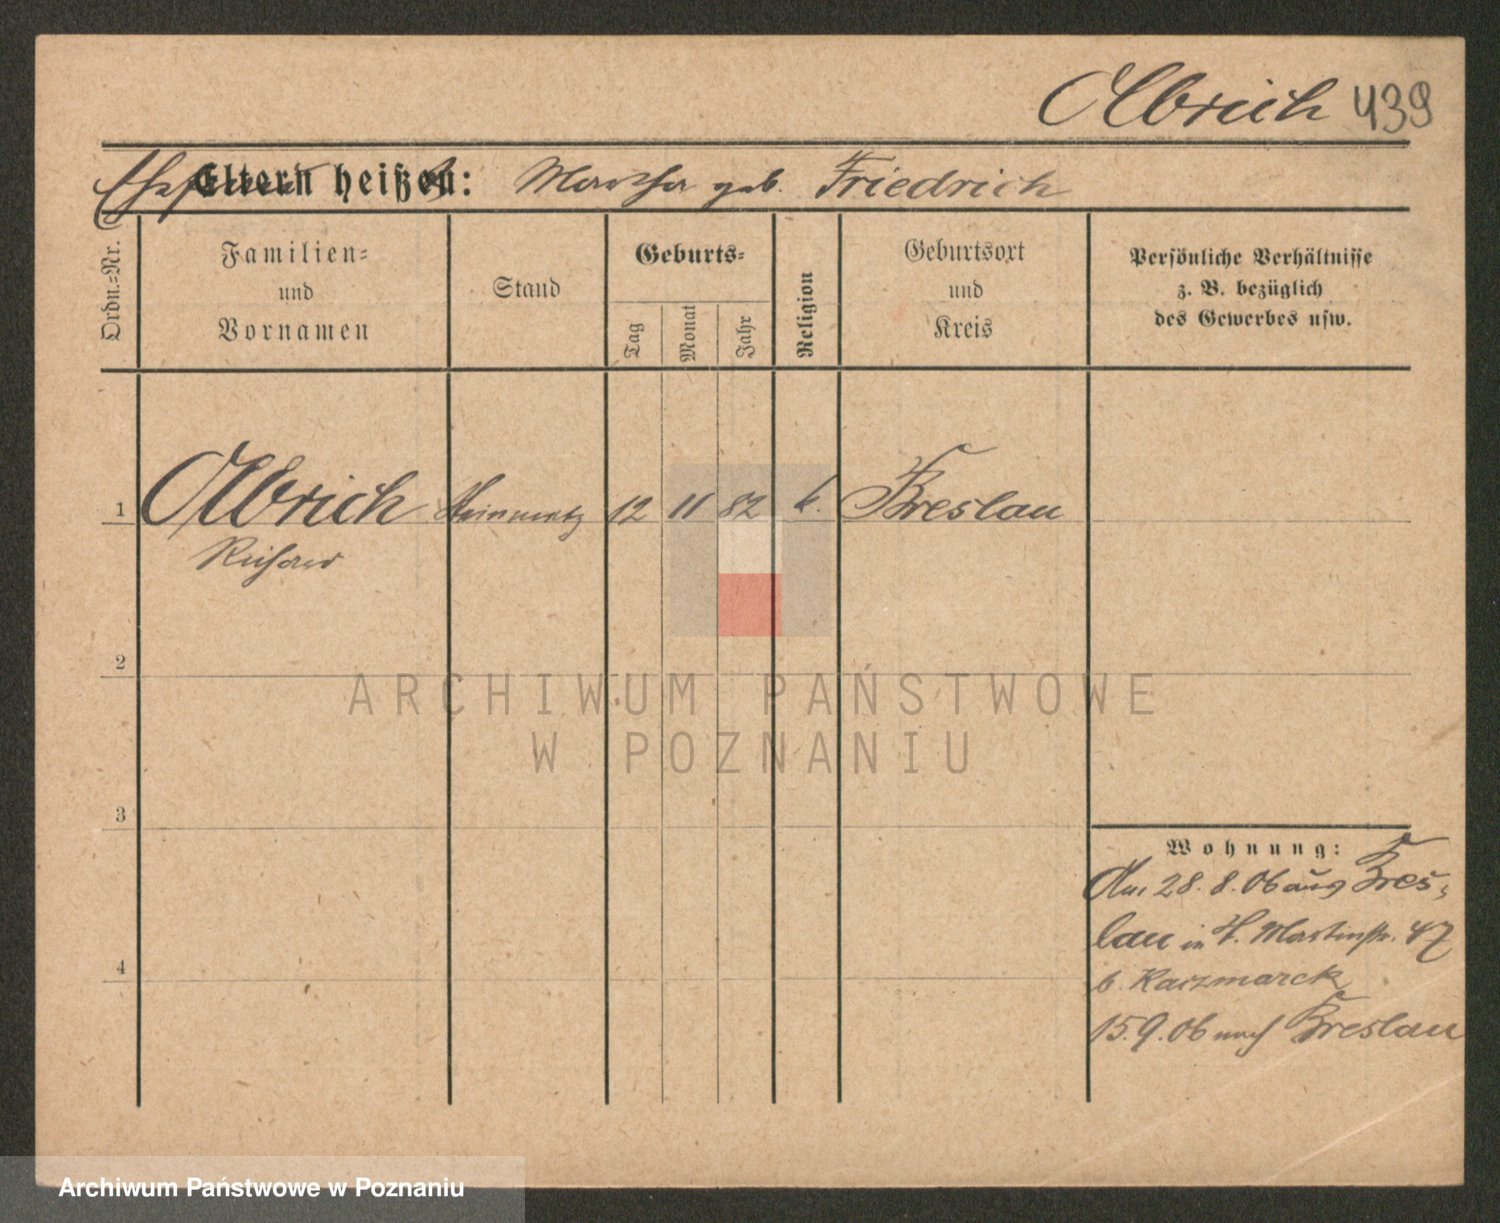 Olbrich 439
Eltern heißen: Martha geb. Friedrich
Ordn.-Nr.
Familien-
und
Vornamen
Stand
Geburts-
Tag
Monat
Jahr
Religion
Geburtsort
und
Kreis
Persönliche Verhältnisse
z. B. bezüglich
des Gewerbes usw.
1 Olbrich Steinmetz 12 11 82 k. Breslau
Richard
2
3
4
Wohnung:
Am 28.8.06 aus Bres-
lau in H. Martinstr. 47
b. Kaczmarek
15.9.06 nach Breslau
ARCHIWUM PAŃSTWOWE
W POZNANIU
Archiwum Państwowe w Poznaniu